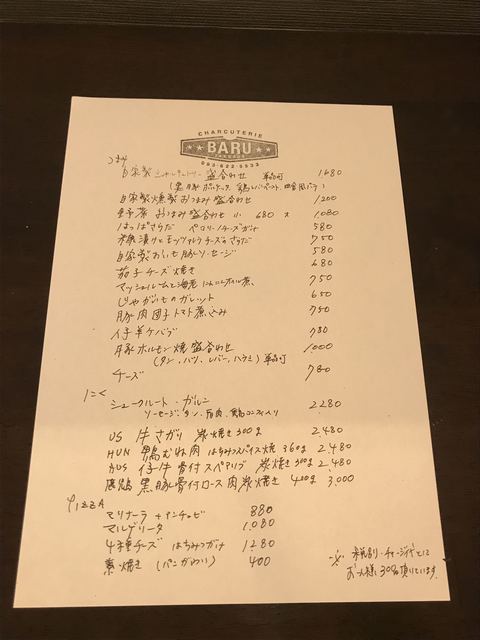 CHARCUTERIE
BARU
つまみ
自家製 シャルキュトリー 盛合わせ 単品可 1680
自家製燻製おつまみ盛合わせ 1200
野菜 おつまみ盛合わせ 小 680 大 1,080
はっぱさらだ ペコリーノチーズがけ 580
モッツァレラチーズのさらだ 750
自家製 ソーセージ 580
茄子チーズ焼き 680
マッシュルームと海老 にんにくオイル煮 750
じゃがいものガレット 650
豚肉団子トマト煮込み 750
仔羊ケバブ 780
豚ホルモン焼盛合わせ 1,000
(タン、ハツ、レバー、ハラミ) 単品可
チーズ 780
にく
シュークルート・ガルニ 2,280
ソーセージ、タン、
US 牛さがり 炭焼き 300g 2,480
HUN 鴨むね肉 はちみつスパイス焼 360g 2,480
AUS 仔牛骨付スペアリブ 炭焼き 2,480
黒豚骨付ロース肉炭焼き 420g 3,000
PIZZA
マリナーラ+アンチョビ 880
マルゲリータ 1,080
4種チーズ はちみつがけ 1280
素焼き (パンがわり) 400
お一人様 300 頂いています。